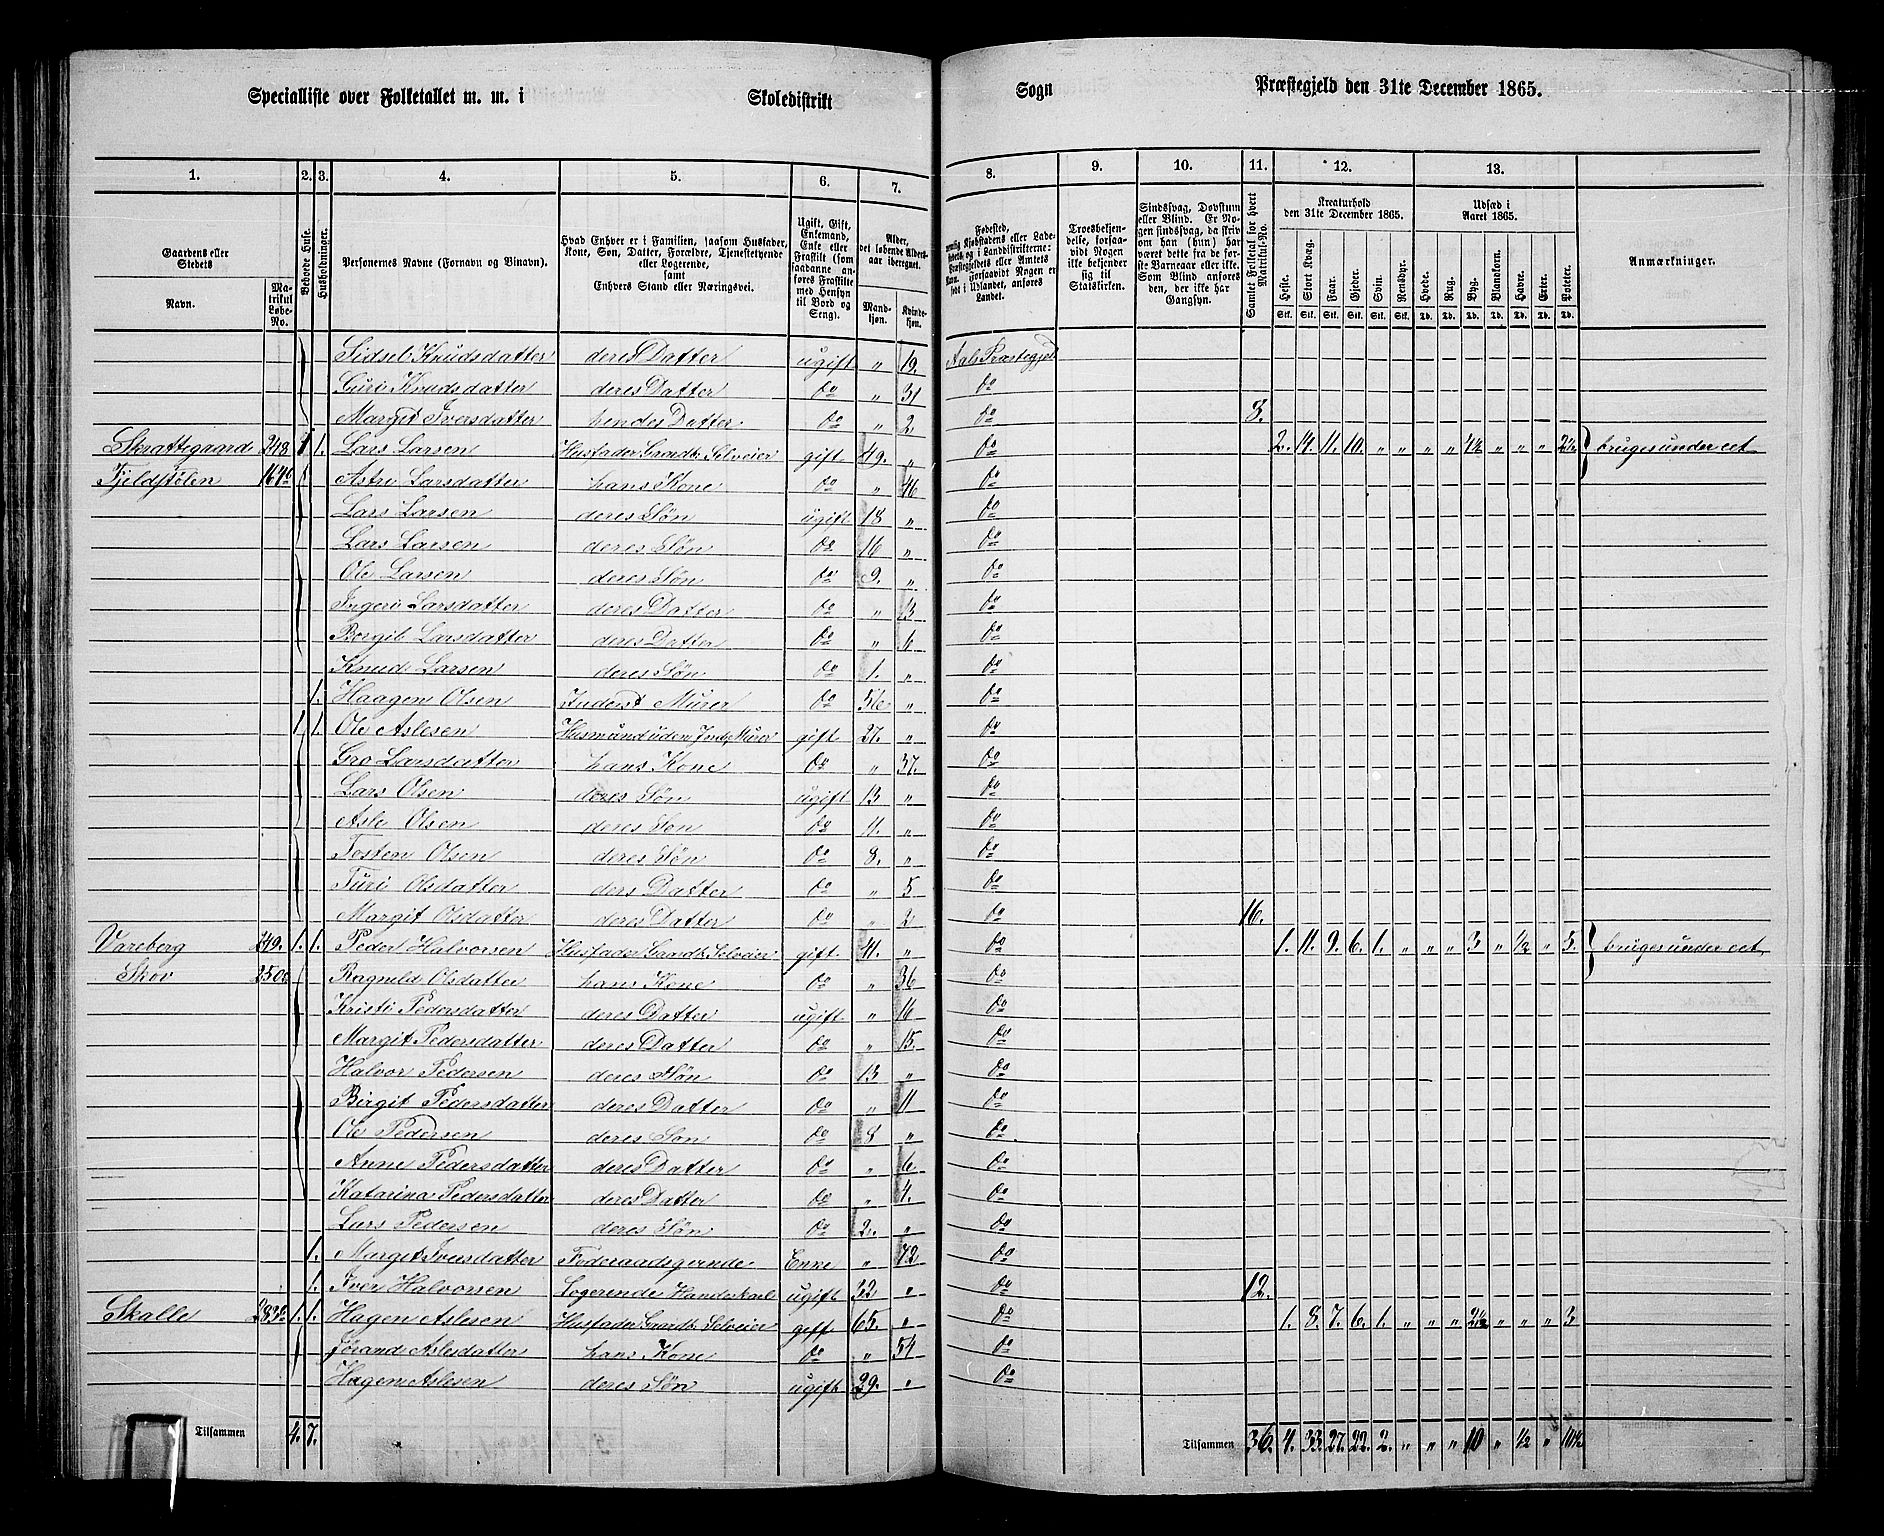 Specialliste over Folketallet m. m. i Skoledistrikt Sogn Præstegjeld den 31te December 1865.
1. 2. 3. 4. 5. 6. 7. 8. 9. 10. 11. 12. 13.
Gaardens eller Stedets
Navn.
Matrikul Løbe-No.
Beboede Huse.
Husholdninger.
Personernes Navne (Fornavn og Binavn).
Hvad Enhver er i Familien, saasom Husfader, Kone, Søn, Datter, Forældre, Tjenestetyende eller Logerende, samt Enhvers Stand eller Næringsvei.
Ugift, Gift, Enkemand, Enke eller Fraskilt (som saadanne anføres Fraskilte med Hensyn til Bord og Seng).
Alder, det løbende Aldersaar iberegnet.
Mandkjøn. Kvindekjøn.
Fødested,
Troesbekjendelse, forsaavidt Nogen ikke bekjender sig til Statskirken.
Sindssvag, Døvstum eller Blind. Er Nogen sindssvag, da skrives om han (hun) har været dette fra de første Barneaar eller ikke. Som Blind anføres de, der ikke har Gangsyn.
Samlet Folketal for hvert Matrikul-No.
Kreaturhold den 31te December 1865.
Heste. Stort Kvæg. Faar. Gjeder. Svin. Rensdyr.
Udsæd i Aaret 1865.
Hvede. Rug. Byg. Blandkorn. Havre. Erter. Poteter.
Anmærkninger.
Sidsel Knudsdatter deres Datter ugift „ 19. Aals Præstegjed
Guri Knudsdatter deres Datter Do „ 31 Do
Margit Iversdatter hendes Datter Do „ 2. Do 8.
Skrattegaard 248 1 1. Lars Larsen Husfader Gaardb. Selveier gift 49. „ Do 2. 14. 11. 10. „ „ „ „ 4½ „ „ „ 2½ bruges under eet
Fjeldstølen 164b Astri Larsdatter hans Kone Do „ 46 Do
Lars Larsen deres Søn ugift 18 „ Do
Lars Larsen deres Søn Do 16 „ Do
Ole Larsen deres Søn Do 9. „ Do
Ingeri Larsdatter deres Datter Do „ 13 Do
Birgit Larsdatter deres Datter Do „ 6 Do
Knud Larsen deres Søn Do 1. „ Do
1. Haagen Olsen Inderst Murer Do 56 „ Do
1 1. Ole Aslesen Husmand uden Jord, Murer gift 27. „ Do
Gro Larsdatter hans Kone Do „ 37. Do
Lars Olsen deres Søn ugift 13 „ Do
Asle Olsen deres Søn Do 11. „ Do
Tosten Olsen deres Søn Do 8. „ Do
Turi Olsdatter ders Datter Do „ 5 Do
Margit Olsdatter deres Datter Do „ 2 Do 16.
Vareberg 249. 1. 1. Peder Halvorsen Husfader Gaardb. Selveier gift 41. „ Do 1. 11. 9. 6. 1. „ „ „ 3 „ ½ „ 5. bruges under eet
Skov 250 Ragnild Olsdatter hans Kone Do „ 36 Do
Kristi Pedersdatter deres Datter ugift „ 16 Do
Margit Pedersdatter deres Datter Do „ 15. Do
Halvor Pedersen deres Søn Do 13 „ Do
Birgit Pedersdatter deres Datter Do „ 11 Do
Ole Pedersen deres Søn Do 8 „ Do
Anne Pedersdatter deres Datter Do „ 6. Do
Katarina Pedersdatter deres Datter Do „ 4. Do
Lars Pedersen deres Søn Do 2. „ Do
1. Margit Iversdatter Føderaadsgernde Enke „ 72 Do
1. Iver Halvorsen Logerende Handskarl ugift 32 „ Do 12.
Skalle 1. 1. Hagen Aslesen Husfader Gaardb. Selveier gift 65. „ Do 1. 8. 7. 6. 1. „ „ „ 2½ „ „ „ 3
Jørand Aslesdatter hans Kone Do „ 54 Do
Hagen Aslesen deres Søn ugift 29. „ Do
Tilsammen 4. 7. Tilsammen 36. 4. 33. 27. 22. 2. „ „ „ 10 „ ½ „ 10½